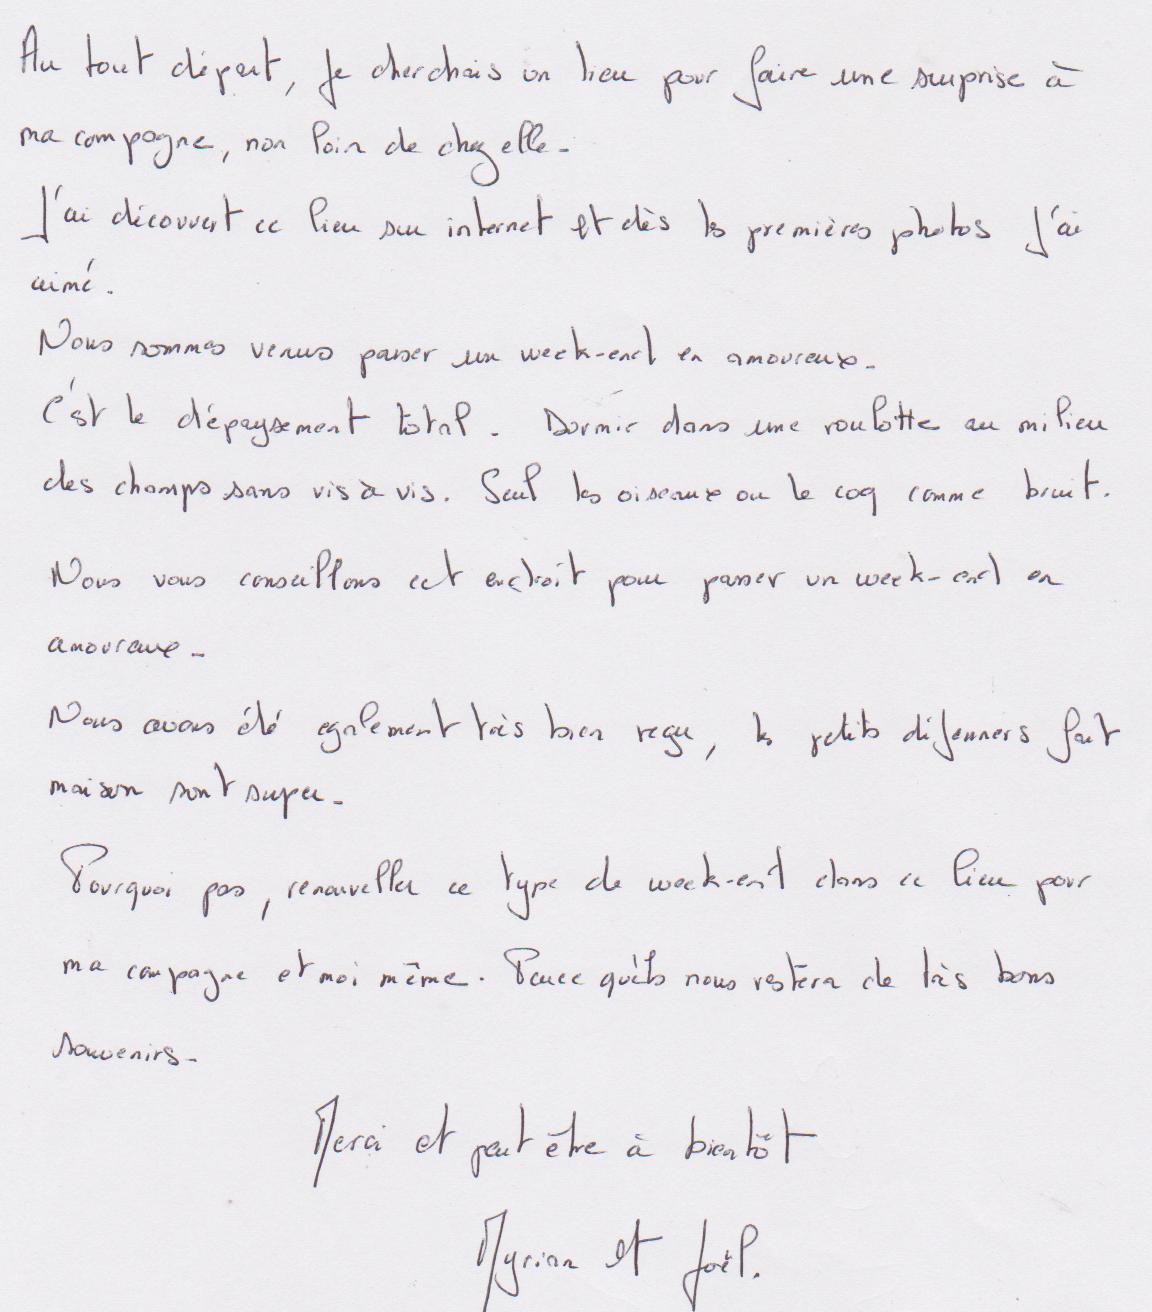 Au tout départ, je cherchais un lieu pour faire une surprise à
ma compagne, non loin de chez elle.
J'ai découvert ce lieu sur internet et dès les premières photos j'ai
aimé.
Nous sommes venus passer un week-end en amoureux.
C'est le dépaysement total. Dormir dans une roulotte au milieu
des champs sans vis à vis. Seul les oiseaux ou le coq comme bruit.
Nous vous conseillons cet endroit pour passer un week-end en
amoureux.
Nous avons été également très bien reçu, les petits déjeuners fait
maison sont super.
Pourquoi pas, renouveller ce type de week-end dans ce lieu pour
ma compagne et moi même. Parce qu'ils nous restera de très bons
souvenirs.
Merci et peut être à bientôt
Myriam et Joël.